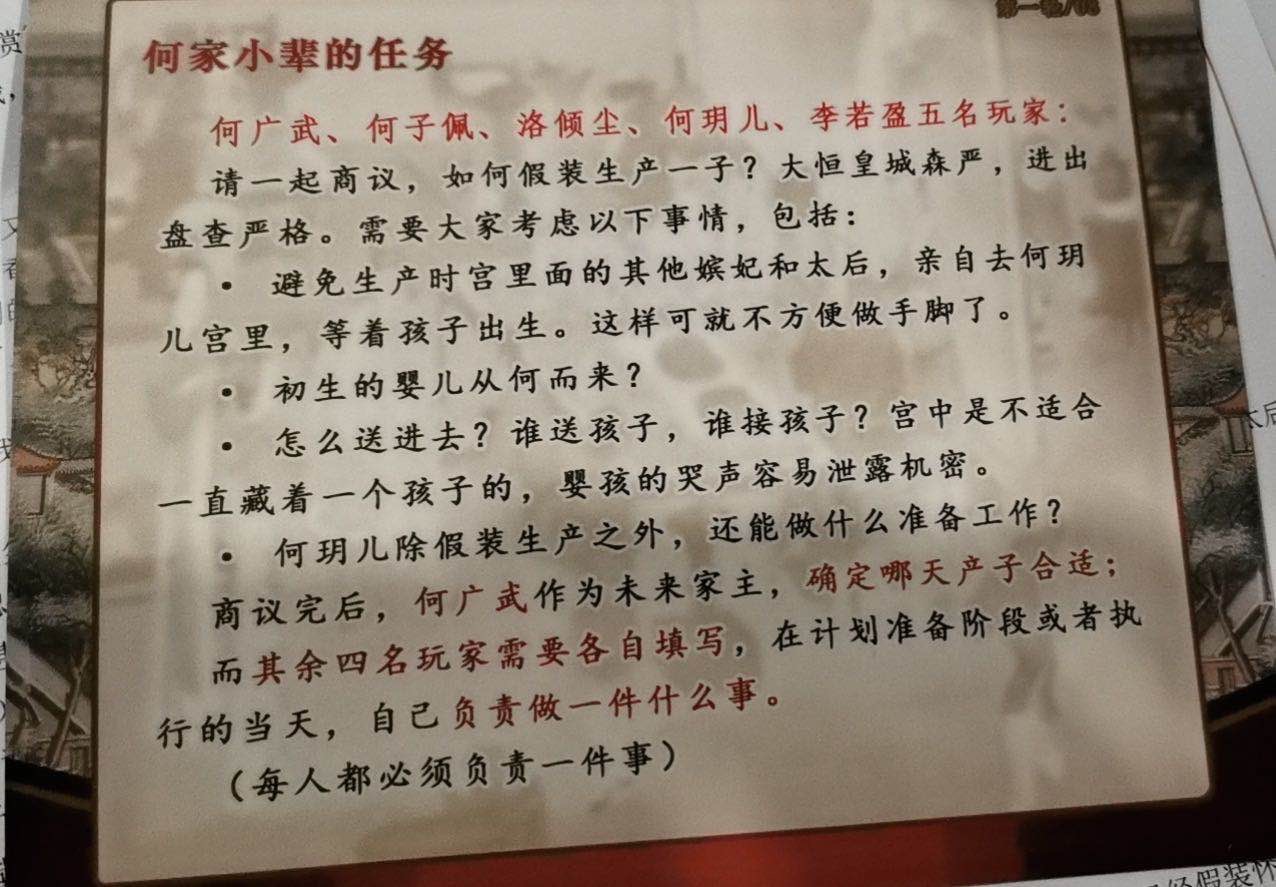 何家小辈的任务
何广武、何子佩、洛倾尘、何玥儿、李若盈五名玩家：
请一起商议，如何假装生产一子？大恒皇城森严，进出
盘查严格。需要大家考虑以下事情，包括：
• 避免生产时宫里面的其他嫔妃和太后，亲自去何玥
儿宫里，等着孩子出生。这样可就不方便做手脚了。
• 初生的婴儿从何而来？
• 怎么送进去？谁送孩子，谁接孩子？宫中是不适合
一直藏着一个孩子的，婴孩的哭声容易泄露机密。
• 何玥儿除假装生产之外，还能做什么准备工作？
商议完后，何广武作为未来家主，确定哪天产子合适；
而其余四名玩家需要各自填写，在计划准备阶段或者执
行的当天，自己负责做一件什么事。
（每人都必须负责一件事）
太后
假装怀